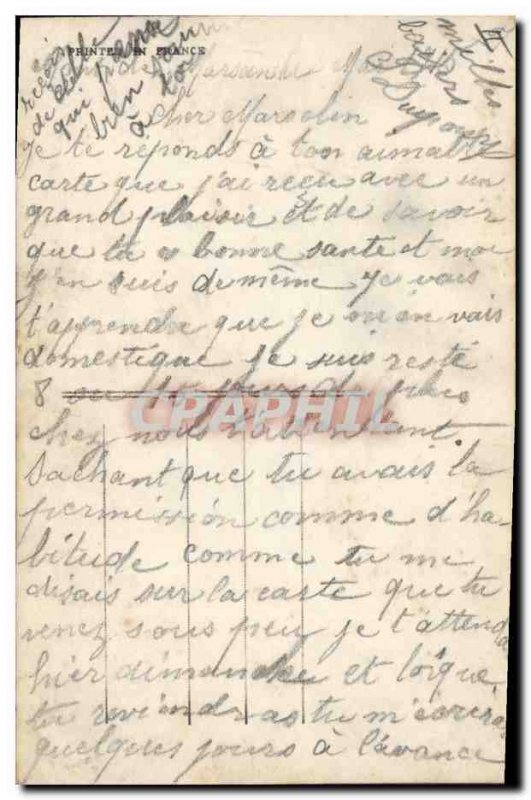 PRINTED IN FRANCE
Cher Marcelin
je te réponds à ton aimable
carte que j'ai reçu avec un
grand plaisir et de savoir
que tu bonne santé et moi
j'en suis de même je vais
t'apprendre que je m'en vais
domestique je suis resté
8 jours de
chez nous
sachant que tu avais la
permission comme d'ha-
bitude comme tu me
disais sur la carte que tu
venez sous peu je t'attenda
hier dimanche et lorsque
tu reviendras tu m'ecriras
quelques jours à l'avance
reçois
de celle
qui pense
bien
à toi
meilles
baisers
CPARPHIL